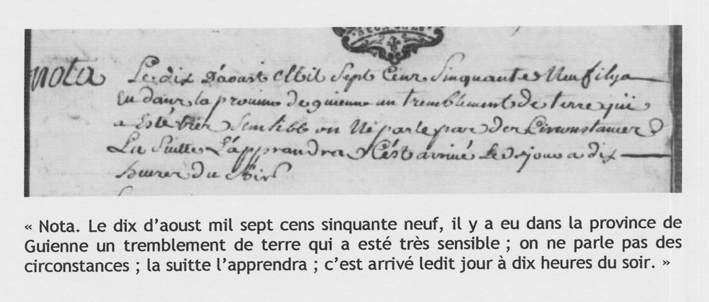 nota Le dix d'aoust Mil Sept Cens Sinquante Neuf il ya
Eu dans la province de guienne un tremblement de terre qui
a Esté tres Sensible on Ne parle pas des Circonstances
La Suitte L'apprendra C'est arrivé Le d jour a dix
heures du Soir
« Nota. Le dix d'aoust mil sept cens sinquante neuf, il y a eu dans la province de
Guienne un tremblement de terre qui a esté très sensible ; on ne parle pas des
circonstances ; la suitte l'apprendra ; c'est arrivé ledit jour à dix heures du soir. »